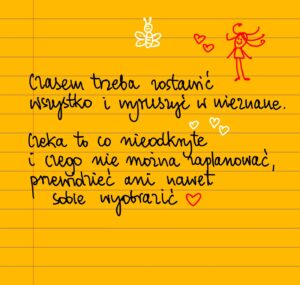 Czasem trzeba zostawić
wszystko i wyruszyć w nieznane.
Czeka to co nieodkryte
i czego nie można zaplanować,
przewidzieć ani nawet
sobie wyobrazić